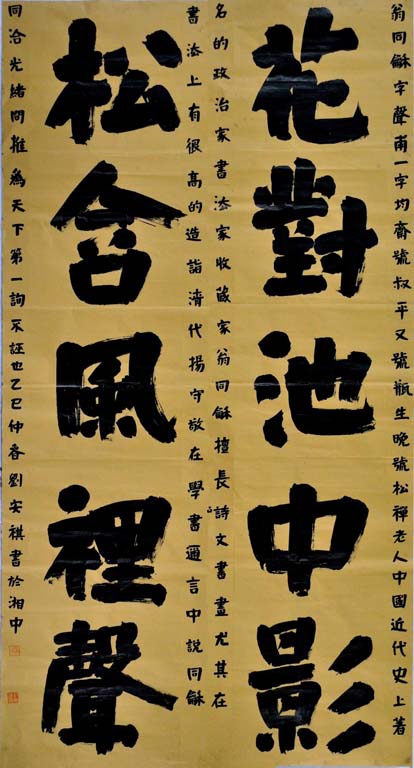 花對池中影
松含風裡聲
翁同龢字聲甫一字均齋號叔平又號瓶生晚號松禪老人中國近代史上著
名的政治家書法家收藏家翁同龢擅長詩文書畫尤其在
書法上有很高的造詣清代楊守敬在學書邇言中說同龢
同治光緒間推為天下第一詢不誣也乙巳仲春劉安祺書於湘中